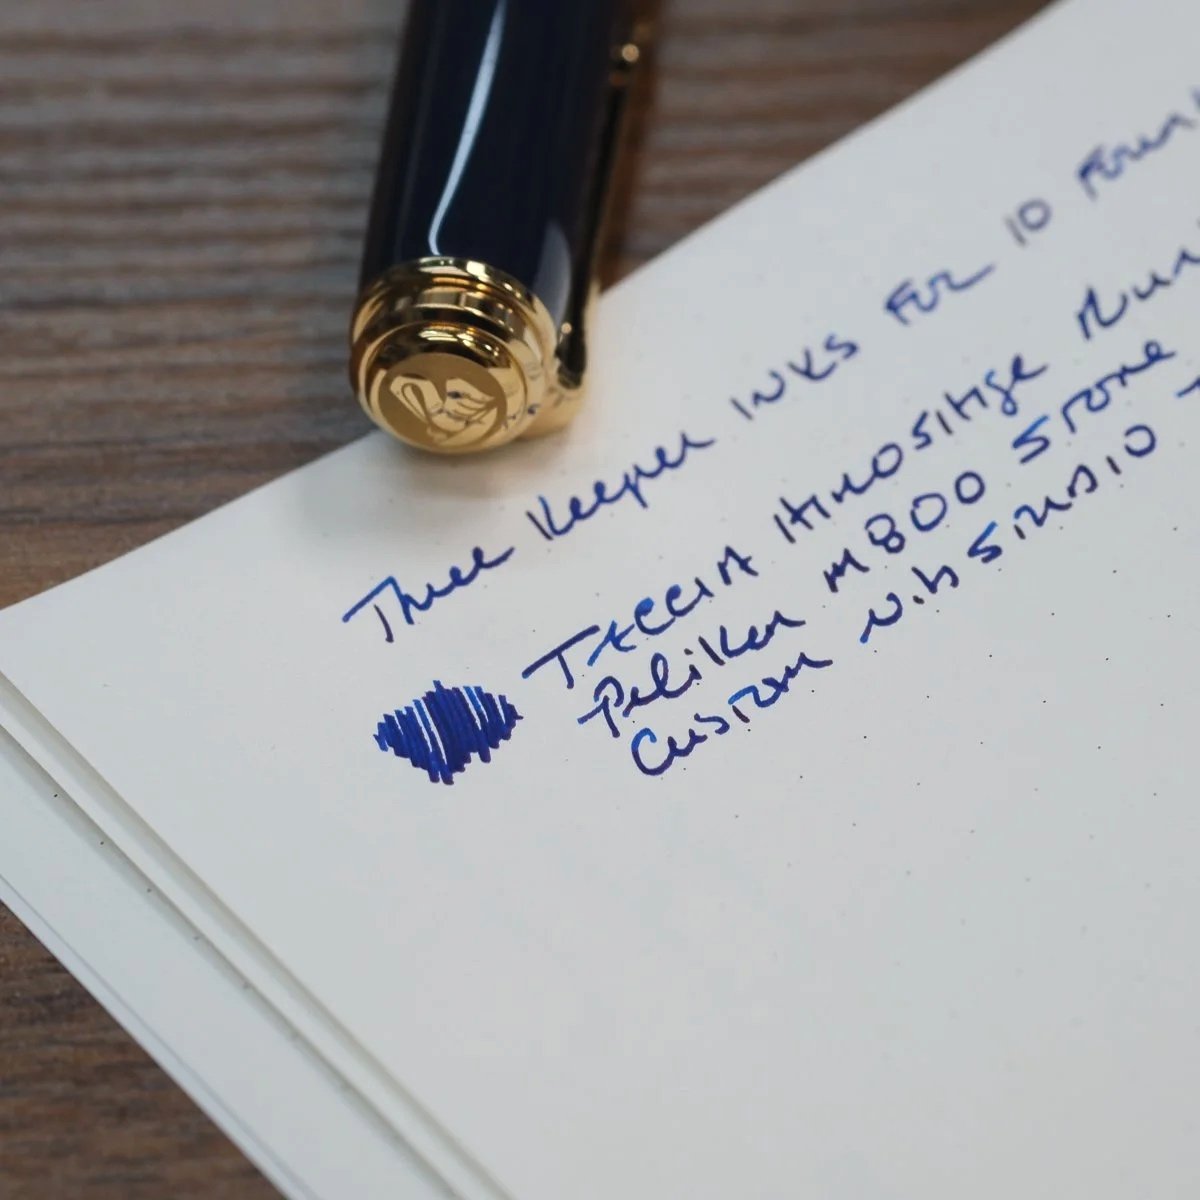 Three Keeper inks for 10
TACCIA Hiroshige
Pelikan M800 Stone
Custom Nib Studio -